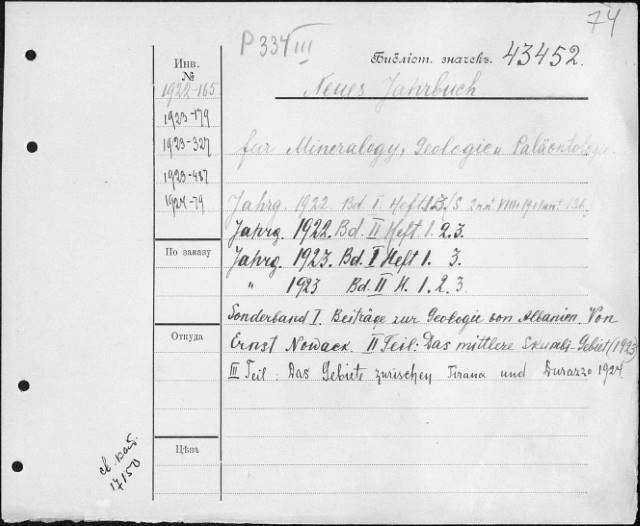 74
P 334 III
Библіот. значекъ. 43452.
Инв. №
1922-165
1923-179
1923-327
1923-487
1924-79
Neues Jahrbuch
für Mineralogy, Geologie u Paläontologie.
Jahrg. 1922. Bd. I. Heft 1.2.3.
Jahrg. 1922. Bd. II Heft 1. 2. 3.
Jahrg. 1923. Bd. I Heft 1. 3.
" 1923 Bd. II H. 1. 2. 3
По заказу
Sonderband I. Beiträge zur Geologie von Albanien. Von
Откуда
Ernst Nowack. II Teil: Das mittlere Skumbi-Gebiet (1923)
III Teil: Das Gebiete zwischen Tirana und Durazzo 1924
Цѣна
св. кат.
17150